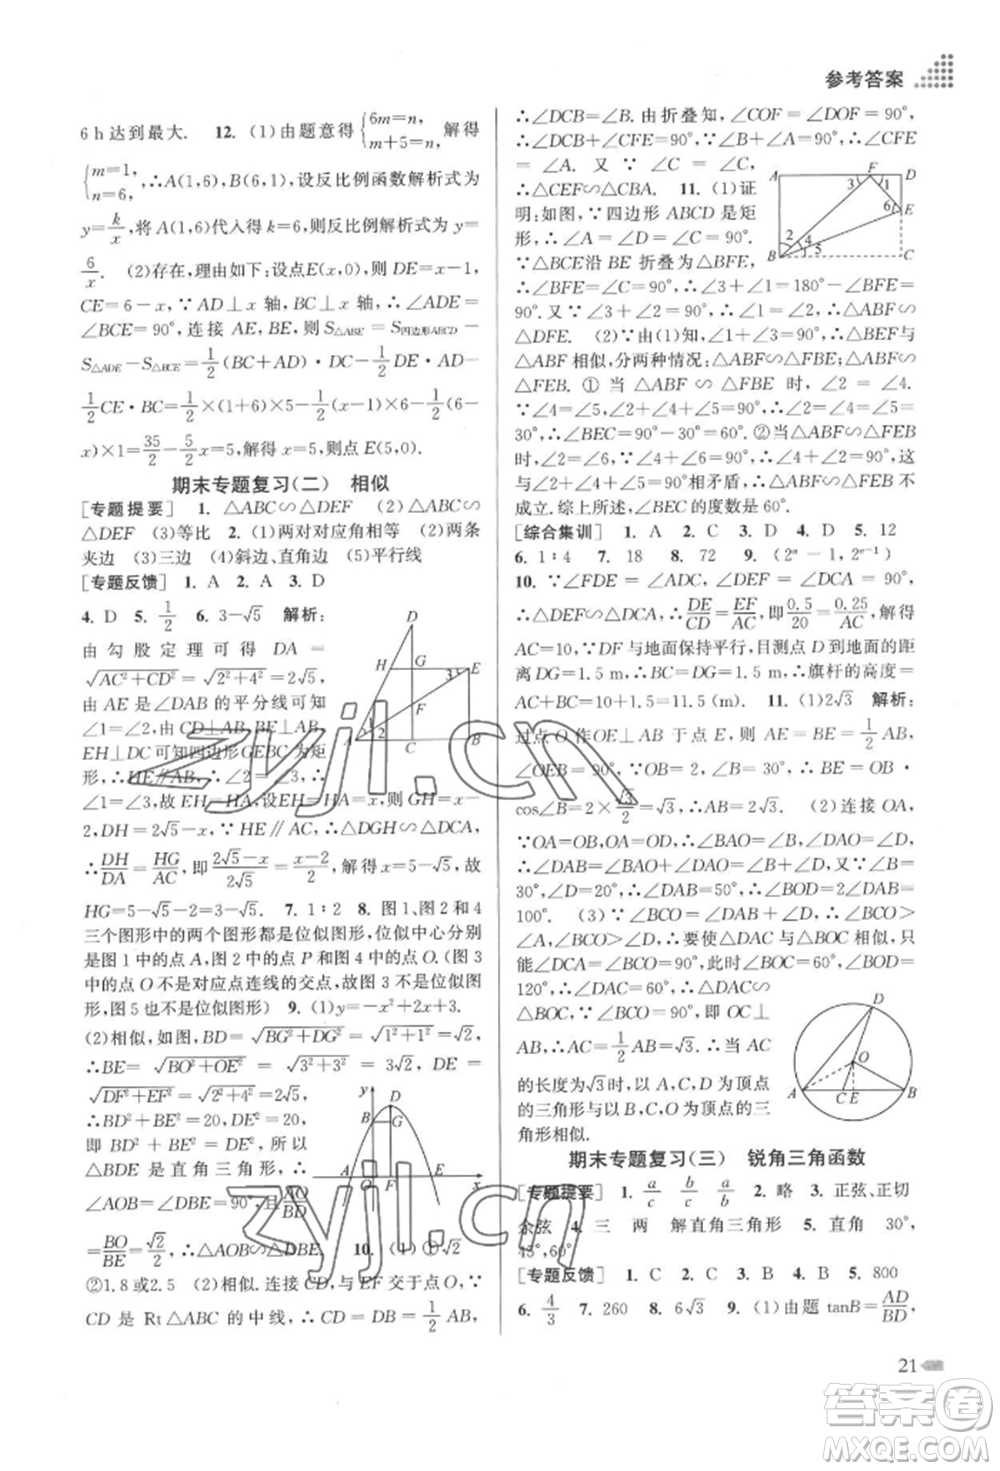 参考答案
6 h达到最大. 12. (1)由题意得{6m=n, m+5=n, 解得
{m=1, n=6, ∴A(1,6),B(6,1),设反比例函数解析式为
y=k/x,将A(1,6)代入得k=6,则反比例函数解析式为y=
6/x. (2)存在,理由如下:设点E(x,0),则DE=x-1,
CE=6-x,∵AD⊥x轴,BC⊥x轴,∴∠ADE=
∠BCE=90°,连接AE,BE,则S△ABE=S四边形ABCD-
S△ADE-S△BCE=1/2(BC+AD)·DC-1/2DE·AD-
1/2CE·BC=1/2×(1+6)×5-1/2(x-1)×6-1/2(6-
x)×1=35/2-5/2x=5,解得x=5,则点E(5,0).
期末专题复习(二) 相似
[专题提要] 1. △ABC∽△DEF (2)△ABC∽
△DEF (3)等比 2. (1)两对对应角相等 (2)两条
夹边 (3)三边 (4)斜边、直角边 (5)平行线
[专题反馈] 1. A 2. A 3. D
4. D 5. 1/2 6. 3-√5 解析:
由勾股定理可得DA=
√(AC²+CD²)=√(2²+4²)=2√5,
由AE是∠DAB的平分线可知
∠1=∠2,由CD⊥AB,BE⊥AB,
EH⊥DC可知四边形GEBC为矩
形,∴HE∥AB,∴∠2=∠3,∴∠1
=∠3,故EH=HA,设EH=HA=x,则GH=x-
2,DH=2√5-x,∵HE∥AC,∴△DGH∽△DCA,
∴DH/DA=HG/AC,即(2√5-x)/2√5=(x-2)/2,解得x=5-√5,故
HG=5-√5-2=3-√5. 7. 1∶2 8. 图1、图2和4
三个图形中的两个图形都是位似图形,位似中心分别
是图1中的点A,图2中的点P和图4中的点O.(图3
中的点O不是对应点连线的交点,故图3不是位似图
形,图5也不是位似图形) 9. (1)y=-x²+2x+3.
(2)相似,如图,BD=√(BG²+DG²)=√(1²+1²)=√2,
∴BE=√(BO²+OE²)=√(3²+3²)=3√2,DE=
√(DF²+EF²)=√(2²+4²)=2√5,
∴BD²+BE²=20,DE²=20,
即BD²+BE²=DE²,所以
△BDE是直角三角形,∴
∠AOB=∠DBE=90°,且AO/BD
=BO/BE=√2/2,∴△AOB∽△DBE. 10. (1)①√2
②1.8或2.5 (2)相似.连接CD,与EF交于点O,∵
CD是Rt△ABC的中线,∴CD=DB=1/2AB,
∴∠DCB=∠B.由折叠知,∠COF=∠DOF=90°,
∴∠DCB+∠CFE=90°,∵∠B+∠A=90°,∴∠CFE
=∠A.又∵∠C=∠C,
∴△CEF∽△CBA. 11. (1)证
明:如图,∵四边形ABCD是矩
形,∴∠A=∠D=∠C=90°.
∵△BCE沿BE折叠为△BFE,∴∠BFE=∠C=
90°.又∵∠3+∠2=90°,∠3+∠1=180°-∠BFE=
90°,∴∠2=∠1.又∵∠A=∠D=90°,∴△ABF∽
△DFE. (2)由(1)知,∠2=∠1,∴当△BEF与
△ABF相似,分两种情况:△ABF∽△FBE;△ABF∽
△FEB. ①当△ABF∽△FBE时,∠2=∠4.
∵∠4=∠5,∠2+∠4+∠5=90°,∴∠2=∠4=∠5
=30°,∴∠BEC=90°-∠5=60°.②当△ABF∽△FEB
时,∠2+∠6=90°,∵∠4+∠6=90°,∠2=∠4,不
成立.综上所述,∠BEC的度数是60°.
[综合集训] 1. A 2. C 3. D 4. D 5. 12
6. 1∶4 7. 18 8. 72 9. (2ⁿ-1,2ⁿ⁻¹)
10. ∵∠FDE=∠ADC,∠DEF=∠DCA=90°,
∴△DEF∽△DCA,∴DE/CD=EF/AC,即0.5/20=0.25/AC,解得
AC=10,∵DF与地面保持平行,目测点D到地面的距
离DG=1.5 m,∴BC=DG=1.5 m,∴旗杆的高度=
AC+BC=10+1.5=11.5(m). 11. (1)2√3 解析:
过点O作OE⊥AB于点E,则AE=BE=1/2AB,
∠OEB=90°,∵OB=2,∠B=30°,∴BE=OB·
cos∠B=2×√3/2=√3,∴AB=2√3. (2)连接OA,
∵OA=OB,OA=OD,∴∠BAO=∠B,∠DAO=∠D,
∴∠DAB=∠BAO+∠DAO=∠B+∠D,
又∵∠B=30°,∠D=20°,∴∠DAB=50°,∴∠BOD=2∠DAB=
100°. (3)∵∠BCO=∠DAB+∠D,∴∠BCO>
∠A,∠BCO>∠D,∴要使△DAC与△BOC相似,只能
∠DCA=∠BCO=90°,此时∠BOC=60°,∠BOD=
120°,∴∠DAC=60°,∴△DAC∽
△BOC,∵∠BCO=90°,即OC⊥
AB,∴AC=1/2AB=√3.∴当AC
的长度为√3时,以A、C、D为顶点
的三角形与以B、C、O为顶点的三
角形相似.
期末专题复习(三) 锐角三角函数
[专题提要] 1. a/c b/c a/b 2. 略 3. 正弦、正切
余弦 4. 三 两 解直角三角形 5. 直角 30°,
45°,60°.
[专题反馈] 1. C 2. C 3. B 4. B 5. 800
6. 4/3 7. 260 8. 6√3 9. (1)由题tanB=AD/BD=
21
zyjl.cn
zyjl.cn
答案圈
MXQE.COM